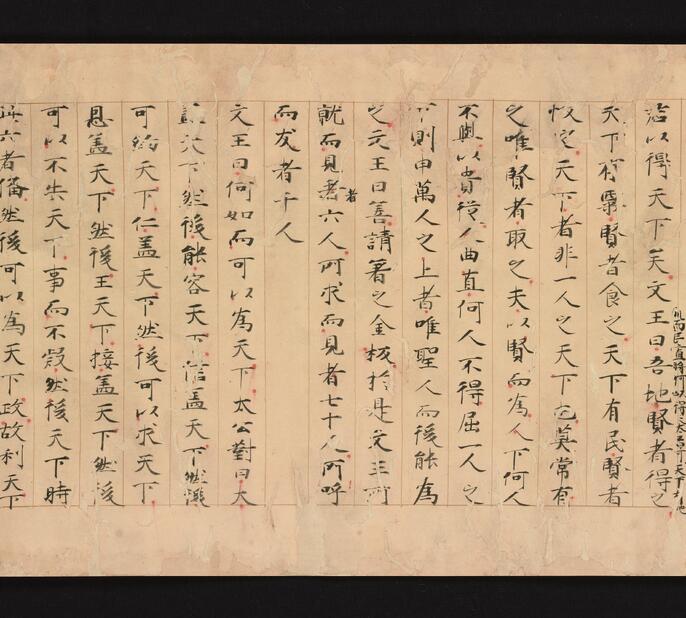 以得天下矣文王曰吾地賢者得之
天下有粟賢者食之天下有民賢者
天下者非一人之天下也莫常有
之唯賢者取之夫以賢而為人下何人
不與以貴從人曲直何人不得屈一人之
下則申萬人之上者唯聖人而後能為
之文王曰善請著之金板於是文王所
就而見者六人所求而見者七十人所呼
而友者千人
文王曰何如而可以為天下太公對曰大
盖天下然後能容天下信盖天下然後
可約天下仁盖天下然後可以求天下
恩盖天下然後王天下權盖天下然後
可以不失天下事而不疑然後天下時
此六者備然後可以為天下政故利天下